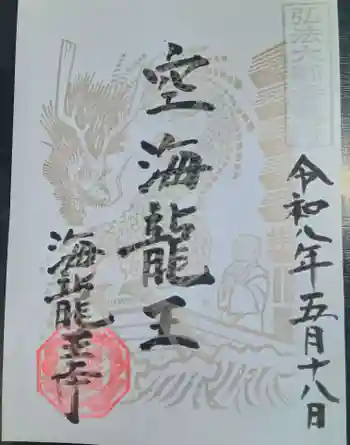 令和八年五月十八日
空海龍王
海龍王寺